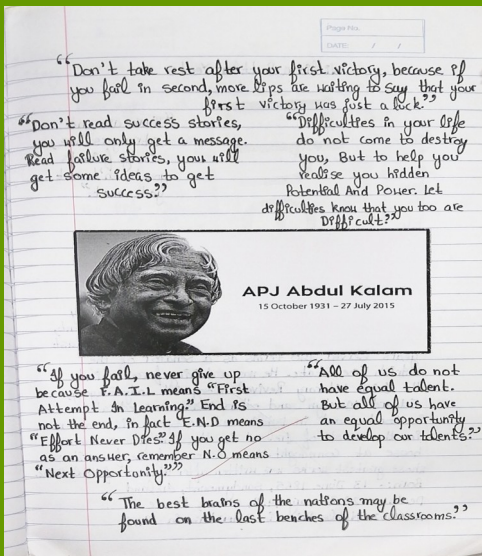 Page No.
DATE: / /
"Don't take rest after your first victory, because if
you fail in second, more lips are waiting to say that your
first victory was just a luck."
"Don't read success stories,
you will only get a message.
Read failure stories, you will
get some ideas to get
success."
"Difficulties in your life
do not come to destroy
you, But to help you
realise you hidden
Potential And Power. Let
difficulties know that you too are
Difficult."
APJ Abdul Kalam
15 October 1931 – 27 July 2015
"If you fail, never give up
because F.A.I.L means "First
Attempt In Learning." End is
not the end, in fact E.N.D means
"Effort Never Dies." If you get no
as an answer, remember N.O means
"Next Opportunity.""
"All of us do not
have equal talent.
But all of us have
an equal opportunity
to develop our talents."
"The best brains of the nations may be
found on the last benches of the classrooms."